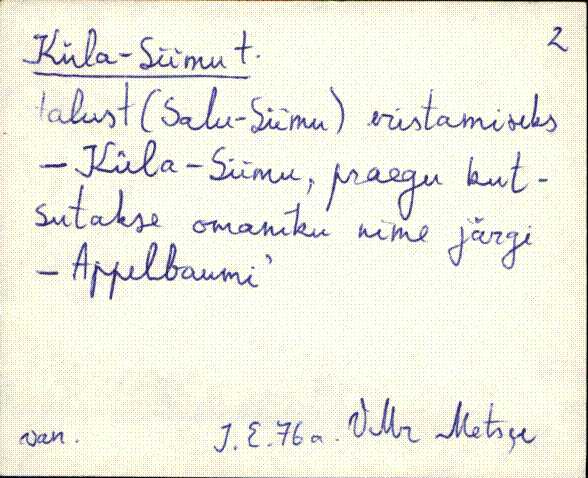 2
Küla-Siimu t.
talust (Salu-Siimu) eristamiseks
– Küla-Siimu, praegu kut-
sutakse omaniku nime järgi
– Appelbaumi
van. J.E. 76 a. VMr Metsa